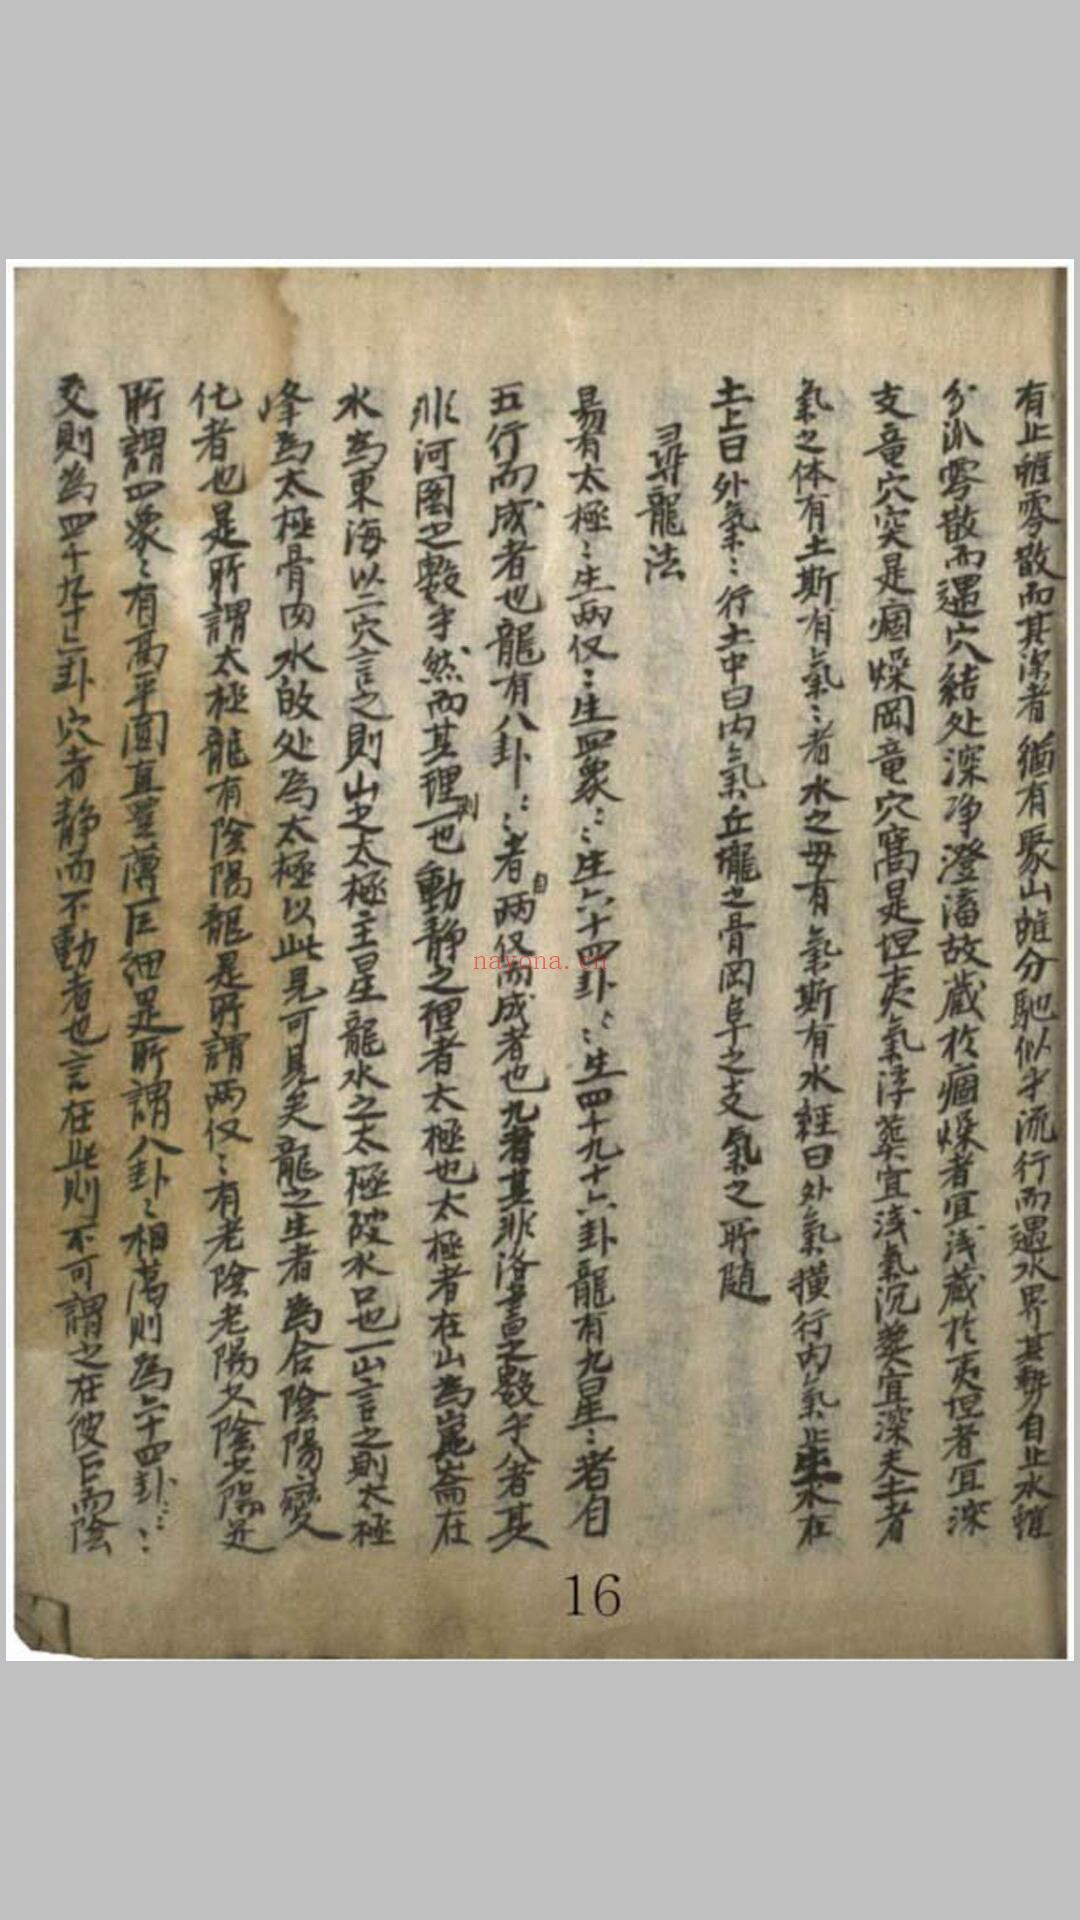 有止雖零散而其深者猶有聚山雖分馳似乎流行而遇水界其勢自止水雖
分派零散而遇穴結处深净澄滀故蔵於痼燥者宜浅蔵於夷坦者宜深
支竜穴突是痼燥岡竜穴窩是坦夷氣浮葬宜浅氣沉葬宜深夫土者
氣之体有土斯有氣〻者水之母有氣斯有水經曰外氣橫行内氣止生水在
土上曰外氣〻行土中曰内氣丘壠之骨岡阜之支氣之所随
尋龍法
易有太極〻生两仪〻生四象〻〻生六十四卦〻〻生四千九十六卦龍有九星〻者自
五行而成者也龍有八卦〻〻者自两仪而成者也九者其非洛書之數乎八者其
非河圖之數乎然而其理則一也動静之理者太極也太極者在山為崑崙在
水為東海以一穴言之則山之太極主星龍水之太極破水口也一山言之則太極
峰為太極骨肉水的处為太極以此見可見矣龍之生者為合陰陽變
化者也是所謂太極龍有陰陽龍是所謂两仪〻有老陰老陽少陰少陽是
所謂四象〻有高平圓直豊薄巨細是所謂八卦〻相蕩則為六十四卦〻〻
交則為四千九十六卦穴者静而不動者也言在此則不可謂之在彼已而陰
16
nayona.cn